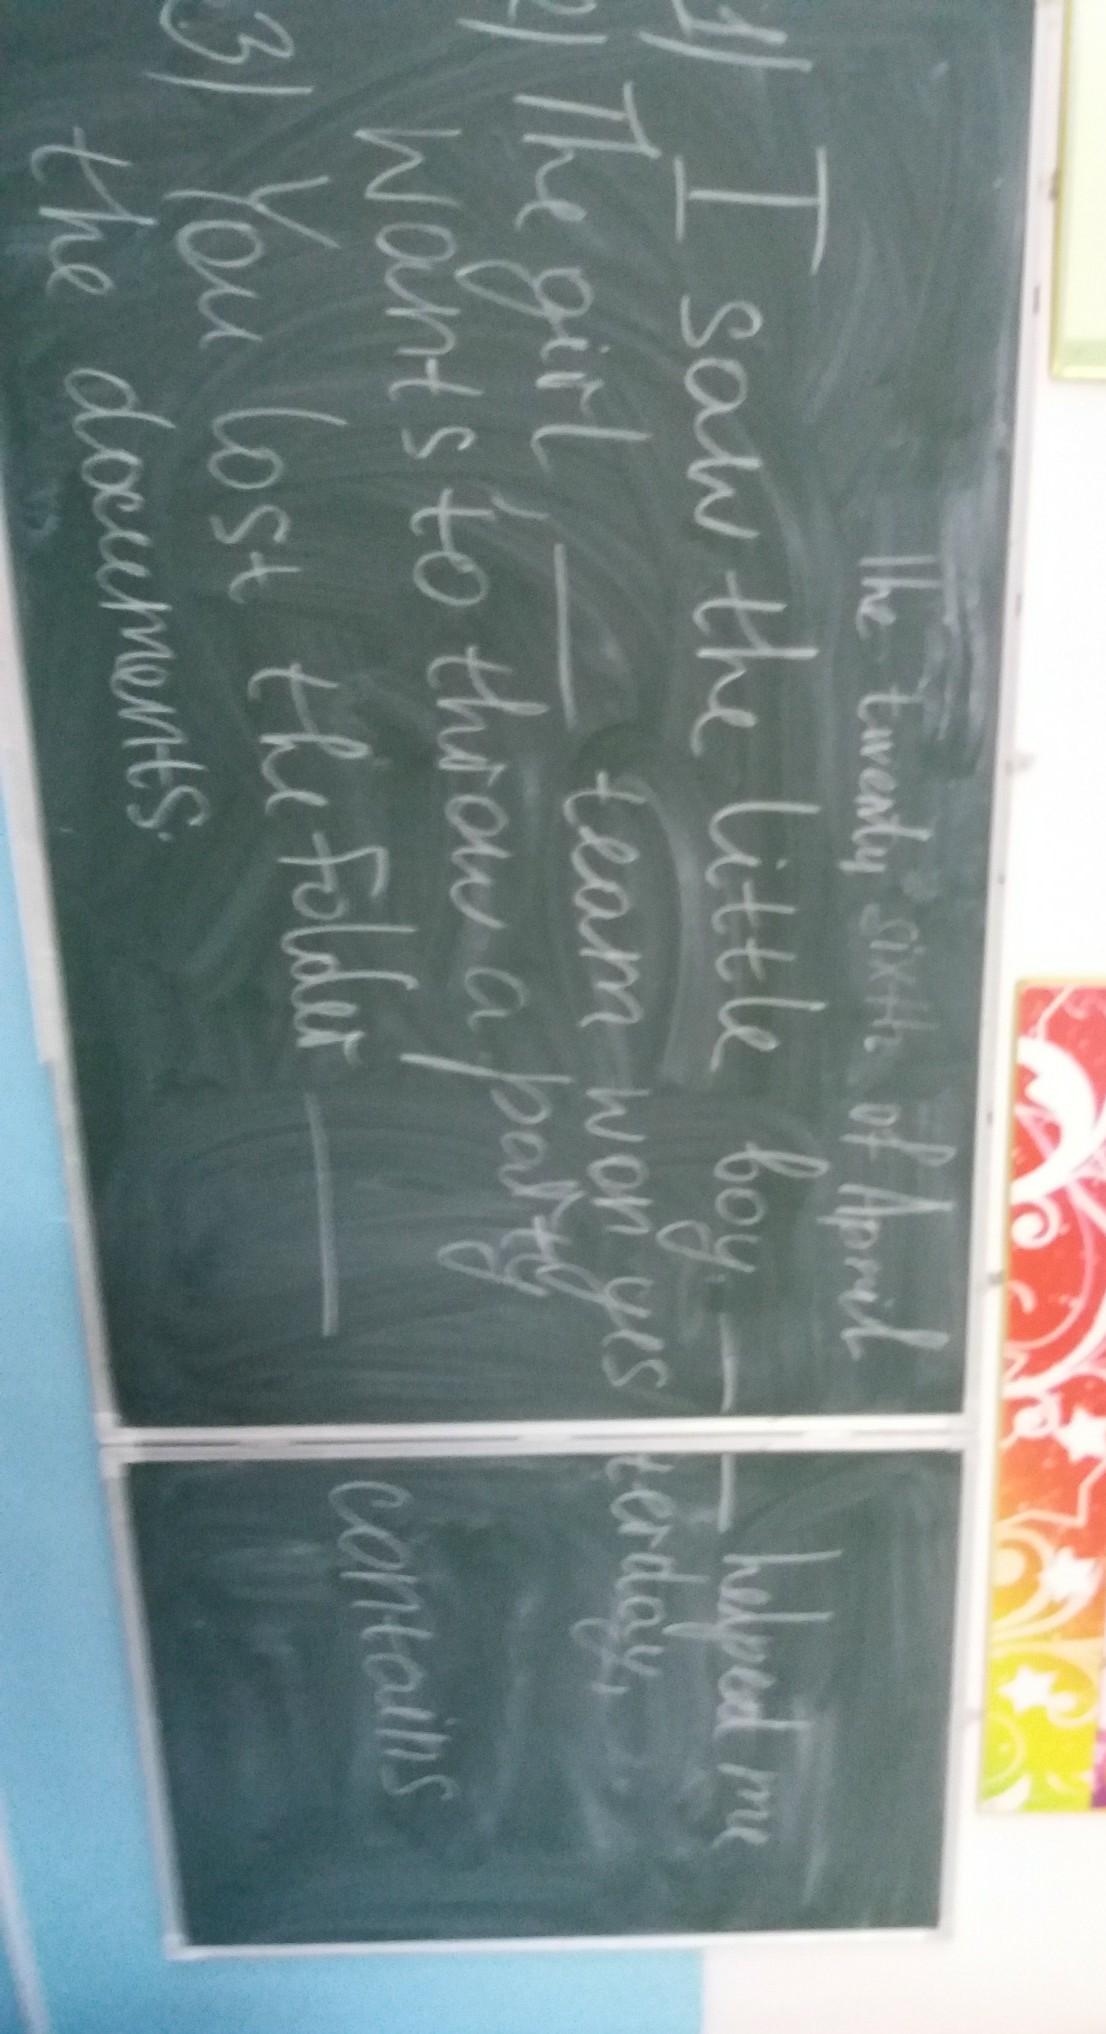 The twenty sixth of April
1) I saw the little boy ____ helped me
2) The girl ____ team won yesterday,
wants to throw a party
3) You lost the folder ____ contains
the documents.